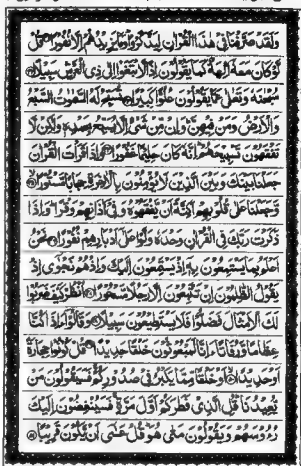 ولقد صرفنا في هذا القران ليذكروا وما يزيدهم الا نفورا قل
لو كان معه الهة كما يقولون اذا لابتغوا الى ذي العرش سبيلا
سبحنه وتعلى عما يقولون علوا كبيرا تسبح له السموت السبع
والارض ومن فيهن وان من شيء الا يسبح بحمده ولكن لا
تفقهون تسبيحهم انه كان حليما غفورا واذا قرات القران
جعلنا بينك وبين الذين لا يؤمنون بالاخرة حجابا مستورا
وجعلنا على قلوبهم اكنة ان يفقهوه وفي اذانهم وقرا واذا
ذكرت ربك في القران وحده ولوا على ادبارهم نفورا نحن
اعلم بما يستمعون به اذ يستمعون اليك واذ هم نجوى اذ
يقول الظلمون ان تتبعون الا رجلا مسحورا انظر كيف ضربوا
لك الامثال فضلوا فلا يستطيعون سبيلا وقالوا ءاذا كنا
عظاما ورفاتا ءانا لمبعوثون خلقا جديدا قل كونوا حجارة
او حديدا او خلقا مما يكبر في صدوركم فسيقولون من
يعيدنا قل الذي فطركم اول مرة فسينغضون اليك
رءوسهم ويقولون متى هو قل عسى ان يكون قريبا